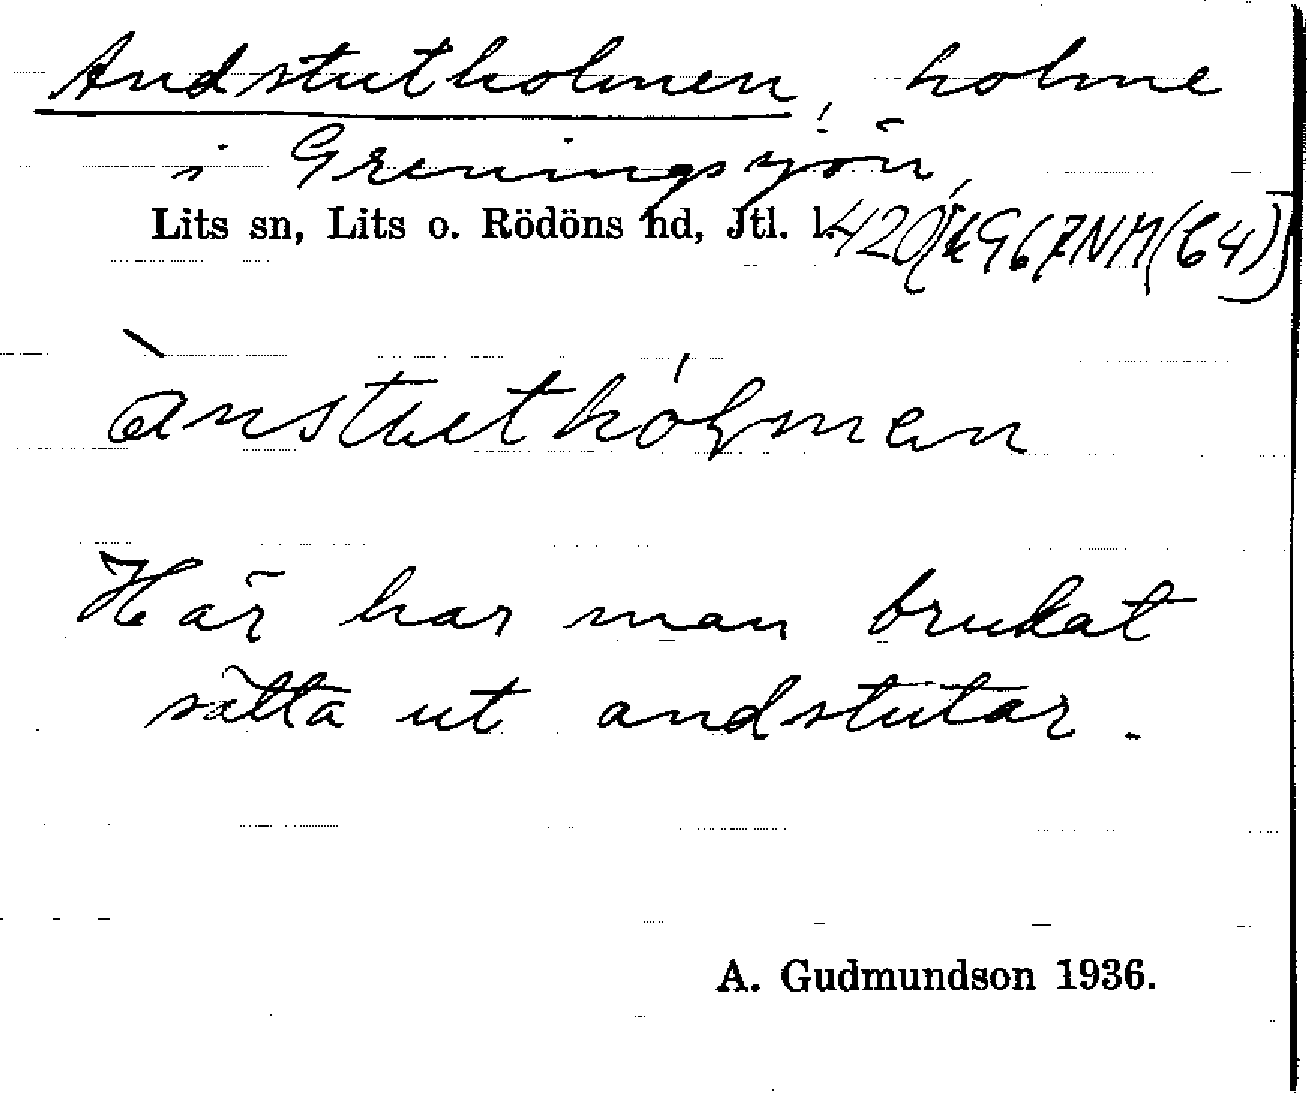 Andstutholmen, holme
i Greningsjön,
Lits sn, Lits o. Rödöns hd, Jtl. l.
ànstuthólmen
Här har man brukat
sätta ut andstutar.
A. Gudmundson 1936.